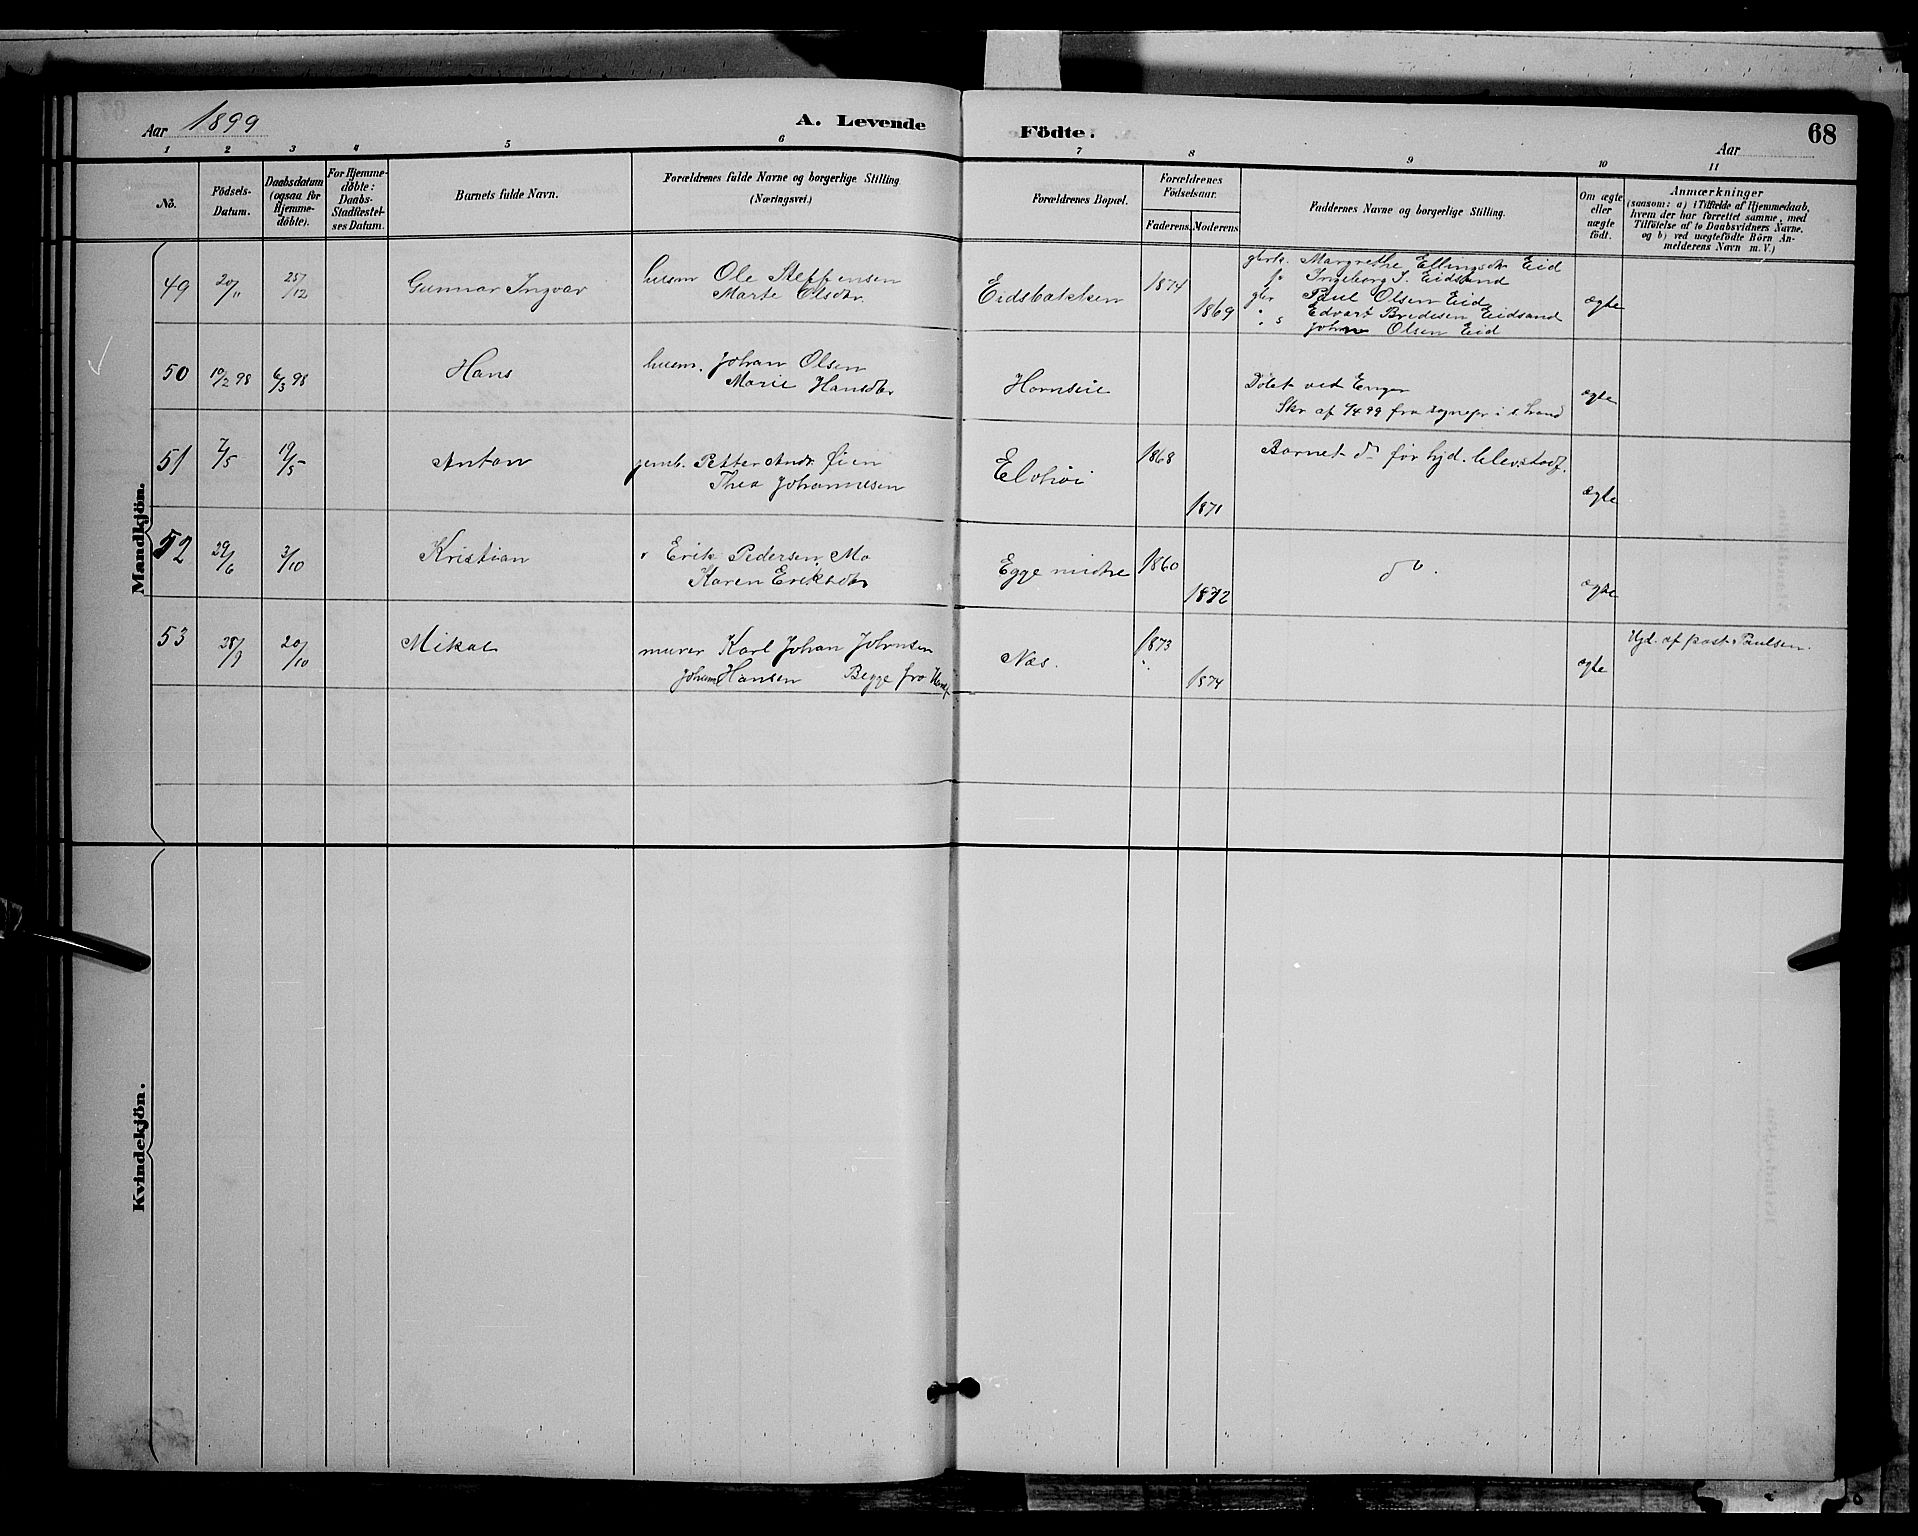 Aar 1899
A. Levende Födte.
68
Aar
1 2 3 4 5 6 7 8 9 10 11
No.
Födsels-Datum.
Daabsdatum (ogsaa for Hjemmedöbte).
For Hjemmedöbte: Daabs-Stadfæstelses Datum.
Barnets fulde Navn.
Forældrenes fulde Navne og borgerlige Stilling (Næringsvei.)
Forældrenes Bopæl.
Forældrenes Födselsaar.
Faderens. Moderens.
Faddernes Navne og borgerlige Stilling.
Om ægte eller uægte födt.
Anmærkninger
(saasom: a) i Tilfælde af Hjemmedaab,
hvem der har forrettet samme, med
Tilföielse af to Daabsvidners Navne.
og b) ved uægtefödte Börn An-
melderens Navn m. V.)
Mandkjön.
49 20/11 25/12 Gunnar Ingvar husm Ole Steffensen
Marte Olsdtr. Eidsbakken 1874 1869
gbrk. Margrethe Ellingsdtr Eid
Ingeborg J. Eidsand
gbr Paul Olsen Eid
Edvart Bredesen Eidsand
Johan Olsen Eid
ægte
50 10/2 98 6/3 98 Hans husm. Johan Olsen
Marie Hansdtr Hornslie
Döbt ved Enger
Skr af 4/4 99 fra sognepr i s. Land
ægte
51 7/5 19/5 Anton jernb. Petter Andr. Øien
Thea Johannesen 1868 1871
Barnet dø før hjd.
ægte
52 29/6 3/10 Kristian Erik Pedersen Mo
Karen Eriksdtr Egge midtre 1860 1872 do. ægte
53 28/9 20/10 Mikal murer Karl Johan Johnsen
Hansen Begge fra
Næs. 1873 1874 ægte
Hjd. af past. Paulsen.
Kvindekjön.